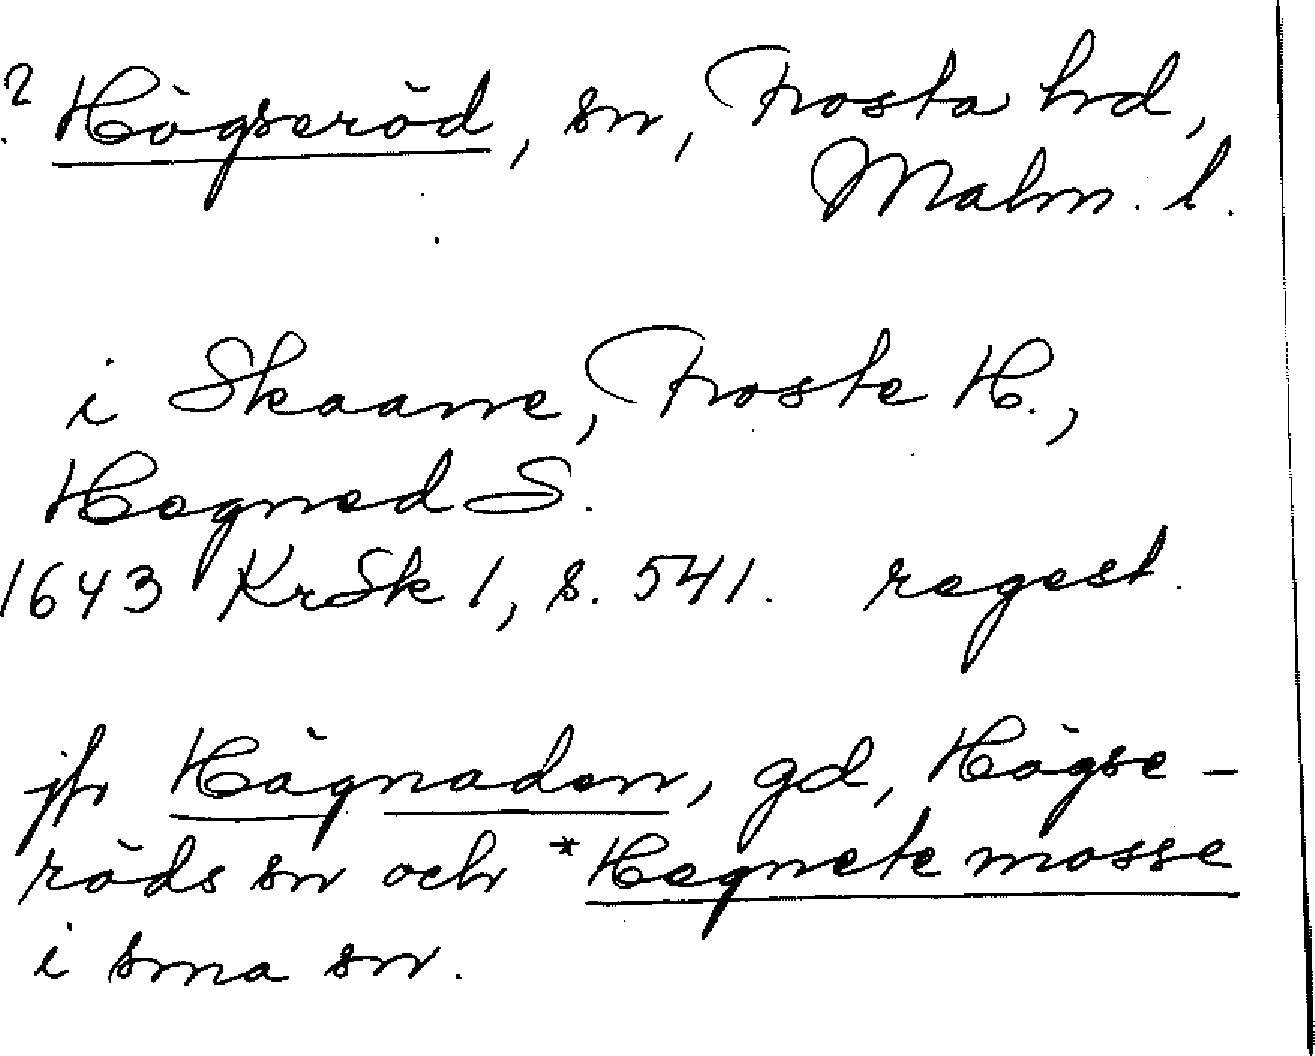 ? Högseröd, sn, Frosta hd,
Malm. l.
i Skaane, Froste H.,
Hegned S.
1643 KrSk 1, s. 541. regest.
jfr Hägnaden, gd, Högse-
röds sn och *Hegnete mosse
i sma sn.